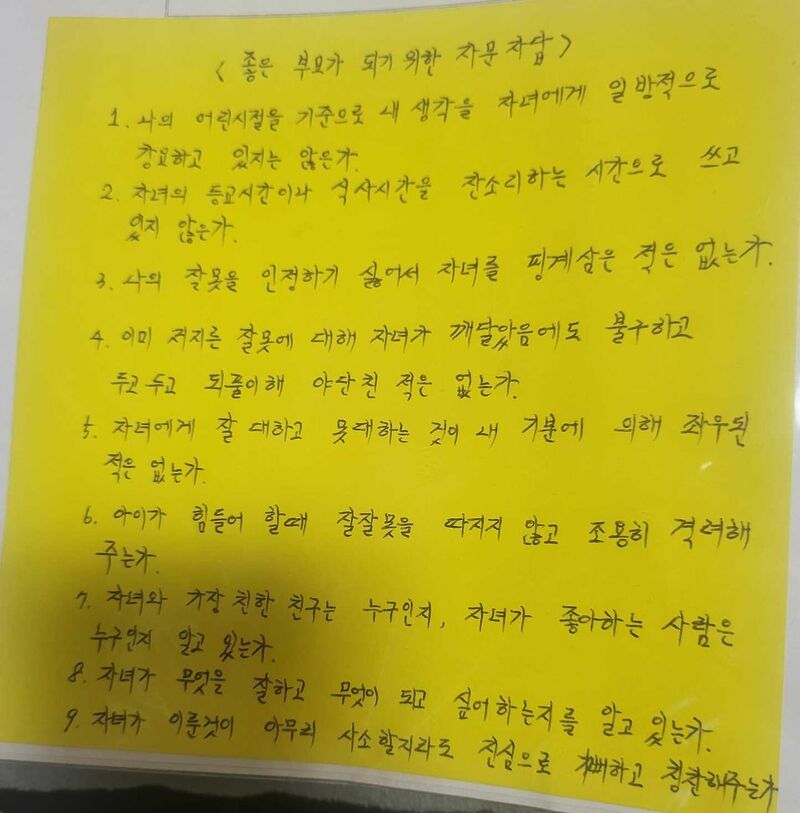 <좋은 부모가 되기 위한 자문자답>
1. 나의 어린시절을 기준으로 내 생각을 자녀에게 일방적으로
강요하고 있지는 않은가.
2. 자녀의 등교시간이나 식사시간을 잔소리하는 시간으로 쓰고
있지 않은가.
3. 나의 잘못을 인정하기 싫어서 자녀를 핑계삼은 적은 없는가.
4. 이미 저지른 잘못에 대해 자녀가 깨달았음에도 불구하고
두고두고 되풀이해 야단친 적은 없는가.
5. 자녀에게 잘 대하고 못대하는 것이 내 기분에 의해 좌우된
적은 없는가.
6. 아이가 힘들어 할때 잘잘못을 따지지 않고 조용히 격려해
주는가.
7. 자녀와 가장 친한 친구는 누구인지, 자녀가 좋아하는 사람은
누구인지 알고 있는가.
8. 자녀가 무엇을 잘하고 무엇이 되고 싶어하는지를 알고 있는가.
9. 자녀가 이룬것이 아무리 사소할지라도 진심으로 기뻐하고 칭찬해주는가